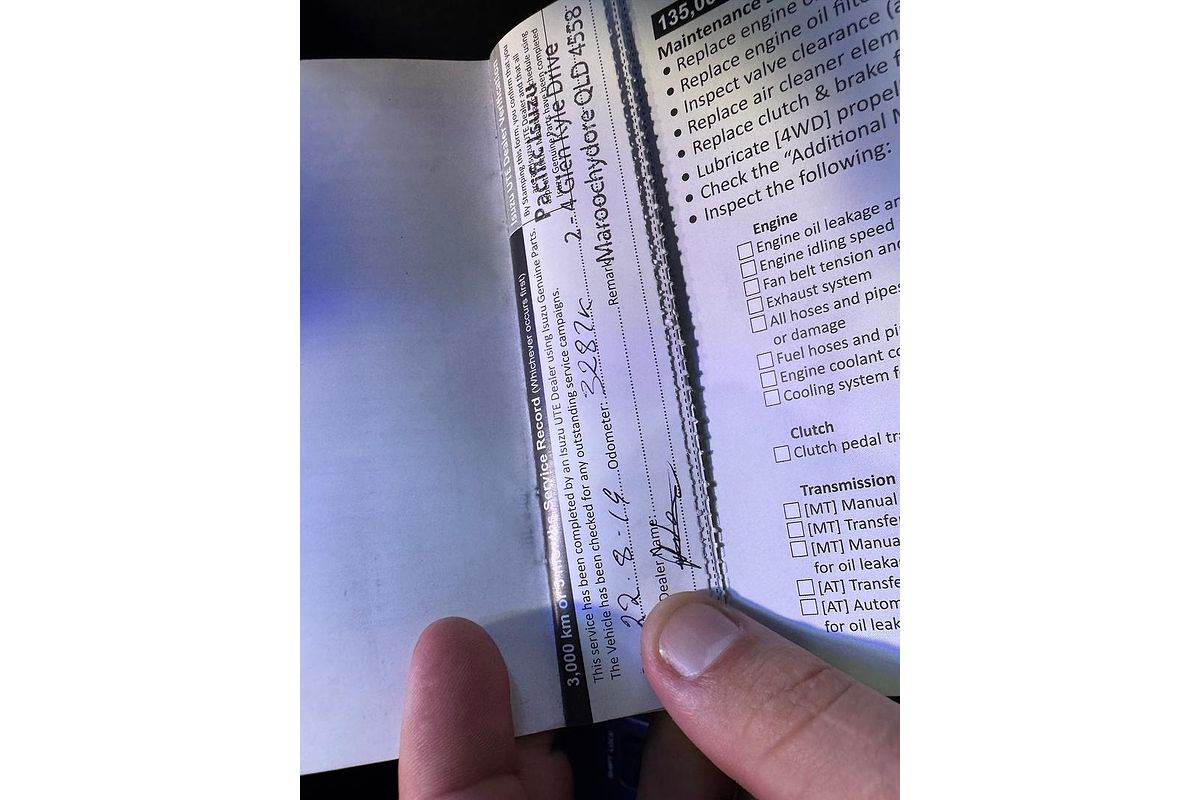 3,000 km or 3 months Service Record (Whichever occurs first)
This service has been completed by an Isuzu UTE Dealer using Isuzu Genuine Parts.
The Vehicle has been checked for any outstanding service campaigns.
22.8-19 Odometer: 3287k Remark
Dealer Name:
Isuzu UTE Dealer Verification
By Stamping this form, you confirm that you
Pacific Isuzu
2 - 4 Glen Kyle Drive
Maroochydore QLD 4558
135,00
Maintenance
• Replace engine o
• Replace engine oil filte
• Inspect valve clearance (a
• Replace air cleaner elem
• Replace clutch & brake f
• Lubricate [4WD] propel
• Check the "Additional M
• Inspect the following:
Engine
Engine oil leakage an
Engine idling speed
Fan belt tension and
Exhaust system
All hoses and pipes
or damage
Fuel hoses and pi
Engine coolant co
Cooling system f
Clutch
Clutch pedal tra
Transmission
[MT] Manual
[MT] Transfe
[MT] Manua
for oil leaka
[AT] Transfe
[AT] Autom
for oil leak